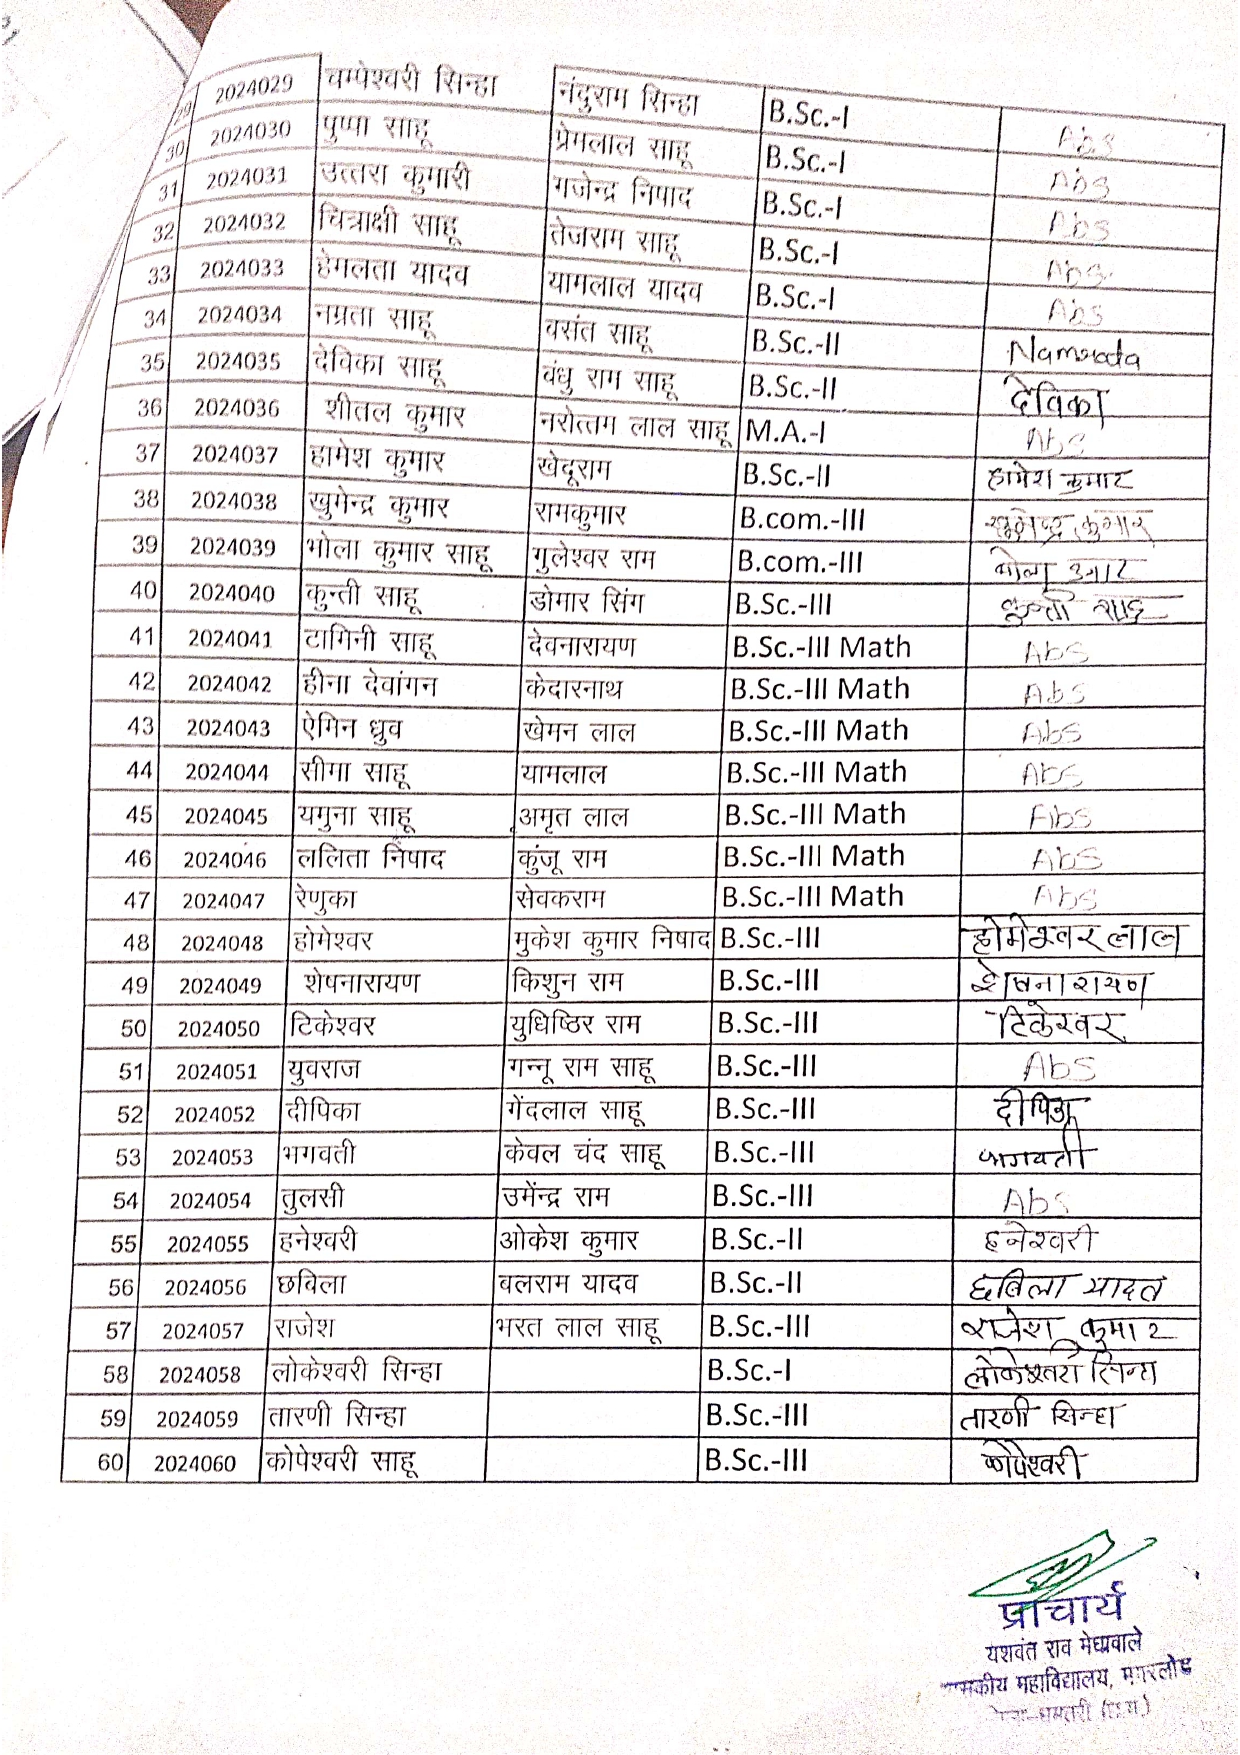 29 2024029 चम्पेश्वरी सिन्हा नंदुराम सिन्हा B.Sc.-I Abs
30 2024030 पुष्पा साहू प्रेमलाल साहू B.Sc.-I Abs
31 2024031 उत्तरा कुमारी गजेन्द्र निषाद B.Sc.-I Abs
32 2024032 चित्राक्षी साहू तेजराम साहू B.Sc.-I Abs
33 2024033 हेमलता यादव यामलाल यादव B.Sc.-I Abs
34 2024034 नम्रता साहू वसंत साहू B.Sc.-II Namrata
35 2024035 देविका साहू बंधु राम साहू B.Sc.-II देविका
36 2024036 शीतल कुमार नरोत्तम लाल साहू M.A.-I Abs
37 2024037 हामेश कुमार खेदूराम B.Sc.-II हामेश कुमार
38 2024038 खुगेन्द्र कुमार रामकुमार B.com.-III खुगेन्द्र कुमार
39 2024039 भोला कुमार साहू गुलेश्वर राम B.com.-III भोला कुमार
40 2024040 कुन्ती साहू डोमार सिंग B.Sc.-III कुन्ती साहू
41 2024041 टागिनी साहू देवनारायण B.Sc.-III Math Abs
42 2024042 हीना देवांगन केदारनाथ B.Sc.-III Math Abs
43 2024043 ऐमिन ध्रुव खेमन लाल B.Sc.-III Math Abs
44 2024044 सीमा साहू यामलाल B.Sc.-III Math Abs
45 2024045 यमुना साहू अमृत लाल B.Sc.-III Math Abs
46 2024046 ललिता निषाद कुंजू राम B.Sc.-III Math Abs
47 2024047 रेणुका सेवकराम B.Sc.-III Math Abs
48 2024048 होमेश्वर मुकेश कुमार निषाद B.Sc.-III होमेश्वर लाल
49 2024049 शेषनारायण किशुन राम B.Sc.-III शेषनारायण
50 2024050 टिकेश्वर युधिष्ठिर राम B.Sc.-III टिकेश्वर
51 2024051 युवराज गन्नू राम साहू B.Sc.-III Abs
52 2024052 दीपिका गेंदलाल साहू B.Sc.-III दीपिका
53 2024053 भगवती केवल चंद साहू B.Sc.-III भागवती
54 2024054 तुलसी उमेंन्द्र राम B.Sc.-III Abs
55 2024055 हनेश्वरी ओकेश कुमार B.Sc.-II हनेश्वरी
56 2024056 छबिला बलराम यादव B.Sc.-II छबिला यादव
57 2024057 राजेश भरत लाल साहू B.Sc.-III राजेश कुमार
58 2024058 लोकेश्वरी सिन्हा B.Sc.-I लोकेश्वरी सिन्हा
59 2024059 तारणी सिन्हा B.Sc.-III तारणी सिन्हा
60 2024060 कोपेश्वरी साहू B.Sc.-III कोपेश्वरी
प्राचार्य
यशवंत राव मेघावाले
महाविद्यालय, मगरलोड
धमतरी (छ.ग.)